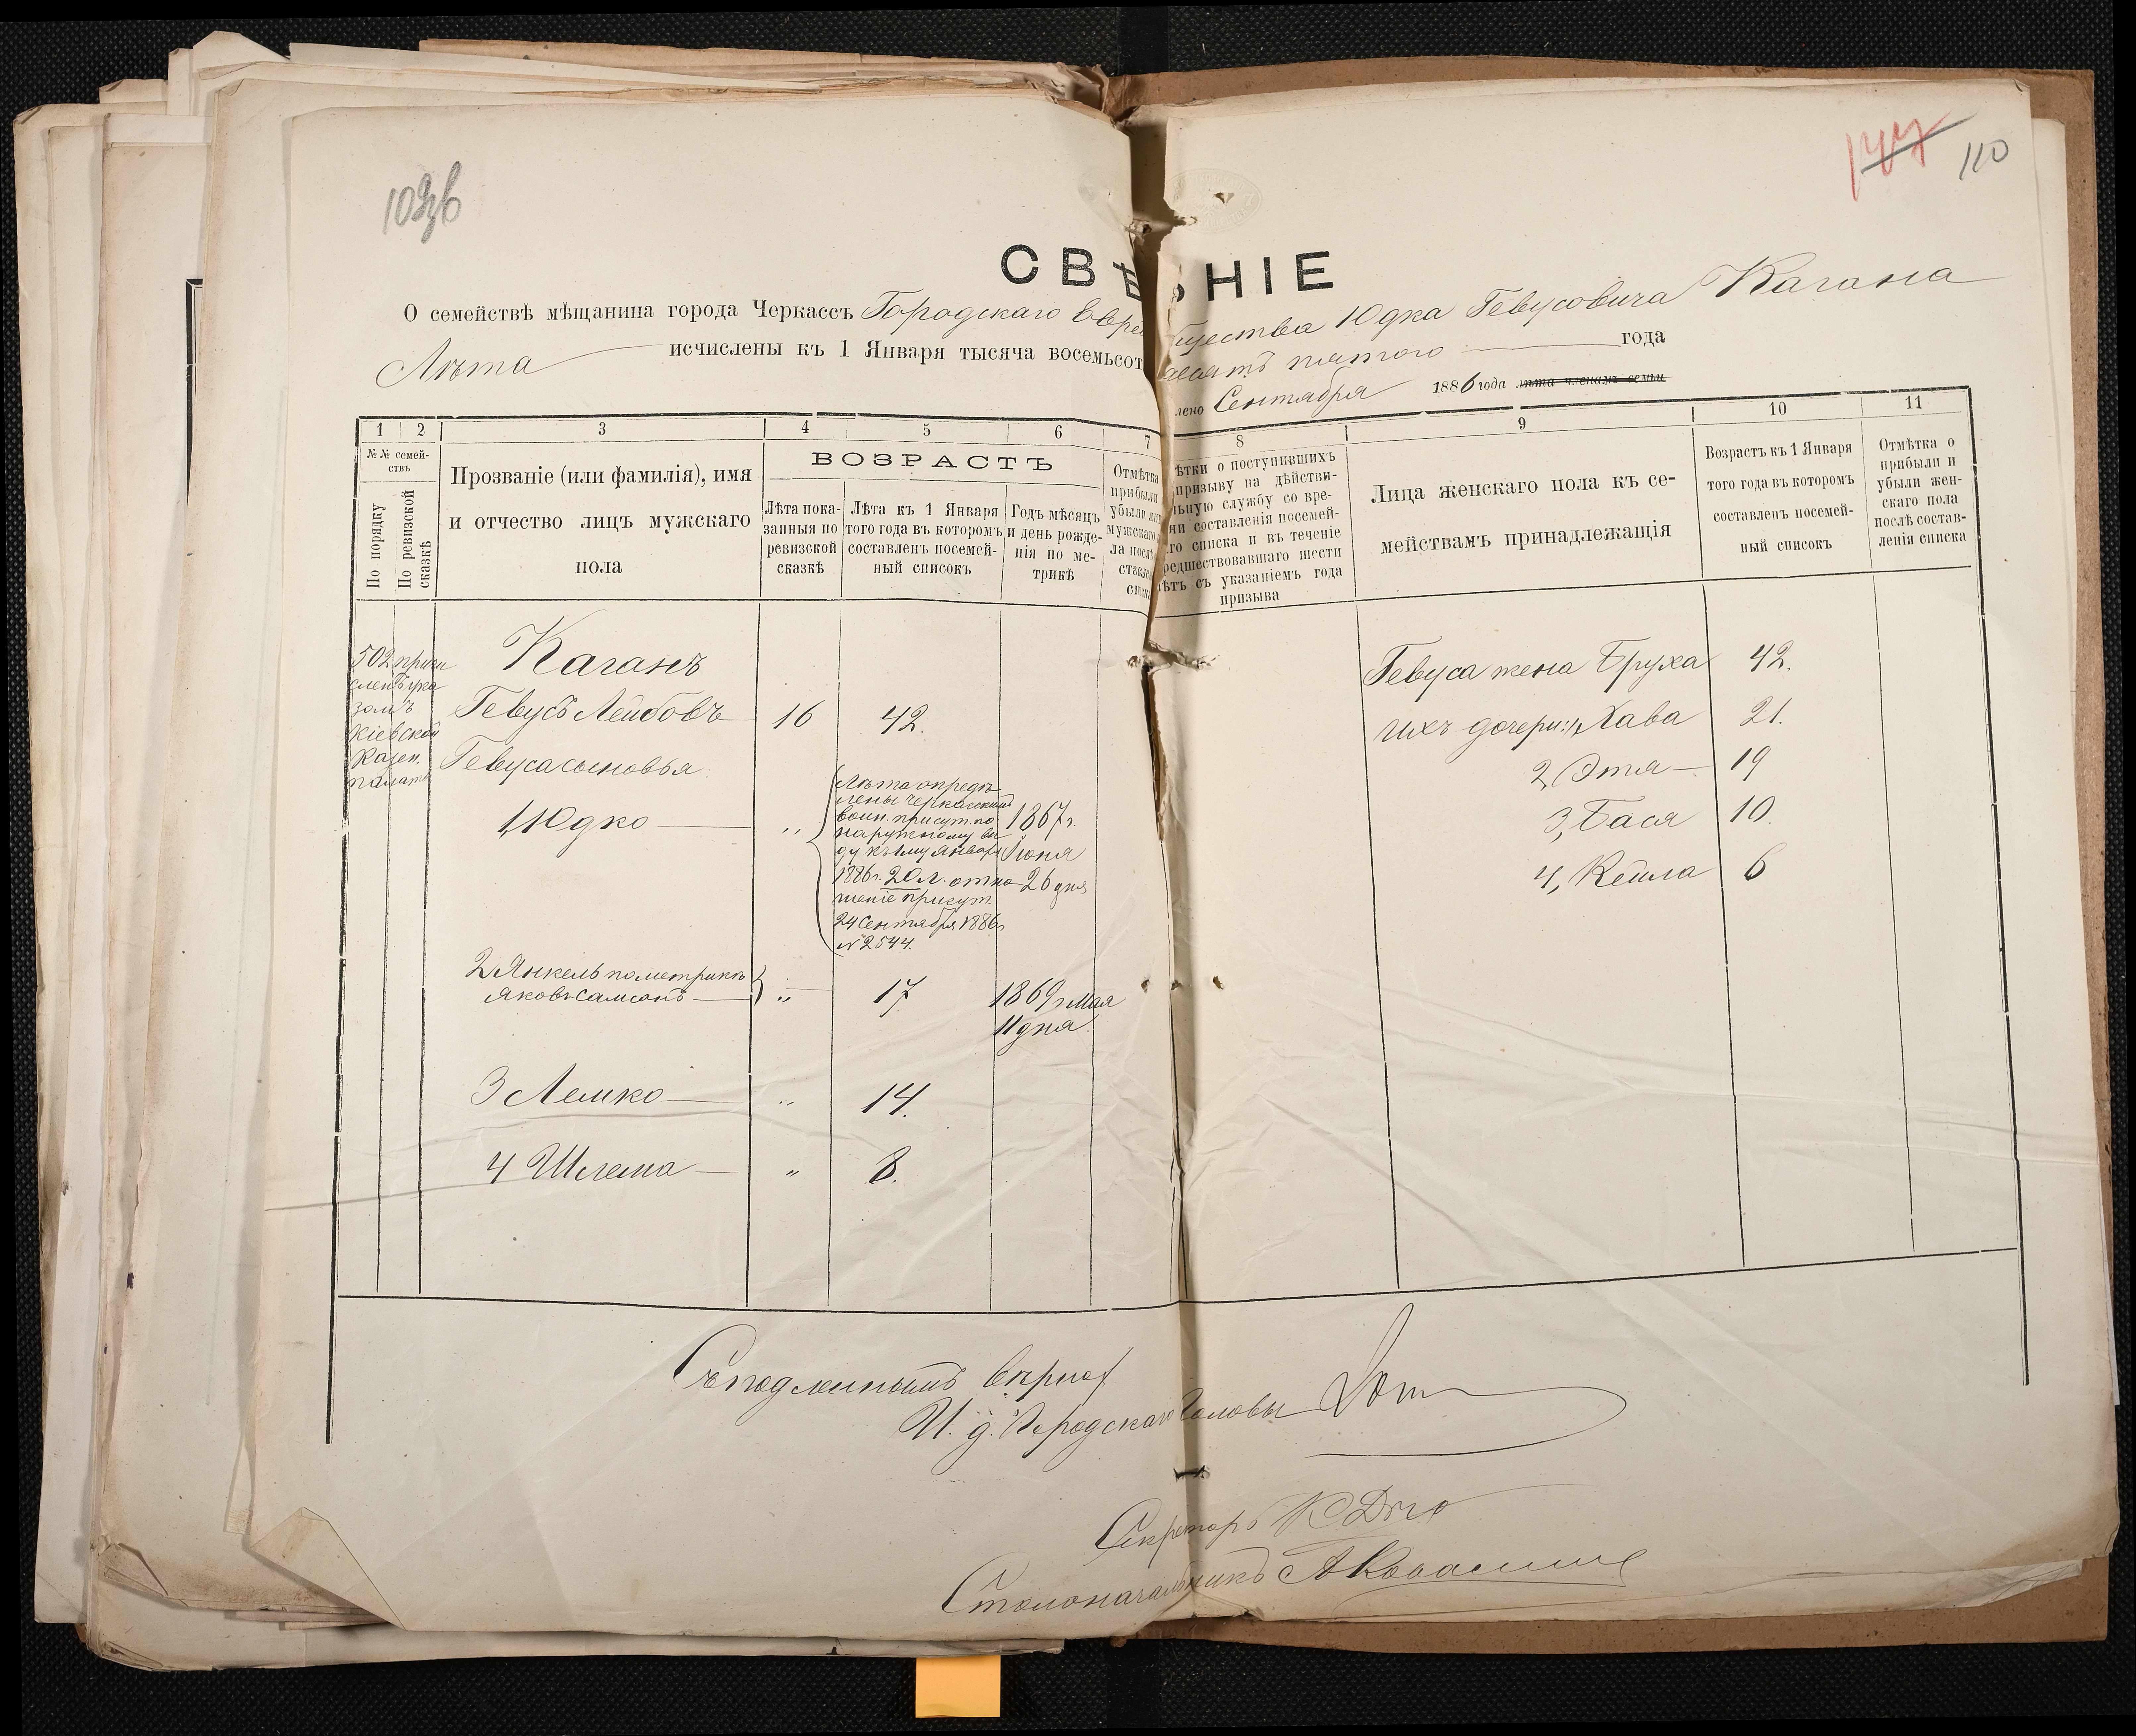 110
СВѢ НІЕ
О семействѣ мѣщанина города Черкассъ Городскаго Евре щества Юдка Гевусовича Кагана
Лѣта исчислены къ 1 Января тысяча восемьсот пятого года
лено Сентября 1886 года лѣта членамъ семьи
1 2 3 4 5 6 7 8 9 10 11
№№ семей-
ствъ
По порядку
По ревизской
сказкѣ
Прозваніе (или фамилія), имя
и отчество лицъ мужскаго
пола
ВОЗРАСТЪ
Лѣта пока-
занныя по
ревизской
сказкѣ
Лѣта къ 1 Января
того года въ котором
составленъ посемей-
ный списокъ
Годъ мѣсяцъ
и день рожде-
нія по ме-
трикѣ
Отмѣтка
прибыли
убыли
мужскаго
ла посл
ставле
спис
ѣтки о поступившихъ
призыву на дѣйстви-
льную службу со вре-
ни составленія посемей-
го списка и въ теченіе
редшествовавшаго шести
ѣтъ съ указаніемъ года
призыва
Лица женскаго пола къ се-
мействамъ принадлежащія
Возрастъ къ 1 Января
того года въ котором
составленъ посемей-
ный списокъ
Отмѣтка о
прибыли и
убыли жен-
скаго пола
послѣ состав-
ленія списка
502 причи
сленъ ука
зомъ
Кіевской
Казен.
палаты
Каганъ
Гевусъ Лейбовъ 16 42.
Гевуса сыновья:
1, Юдко „
Лѣта опредѣ
лены Черкасскимъ
воин. присут. по
наружному ви
ду къ 1му Января
1886 г. 20 л. отно
шеніе присут.
24 Сентября 1886 г.
№ 2544.
1867 г.
Іюня
26 дня
2 Янкель по метрикѣ
Яковъ Самсонъ „ 17 1869 г. Мая
11 дня
3 Лемко „ 14.
4 Шлема „ 8.
Гевуса жена Бруха 42.
ихъ дочери: 1, Хава 21.
2, Этя 19
3, Бася 10.
4, Кейла 6
Съ подлиннымъ вѣрно
И. д. Городскаго Головы
Секретарь
Столоначальникъ